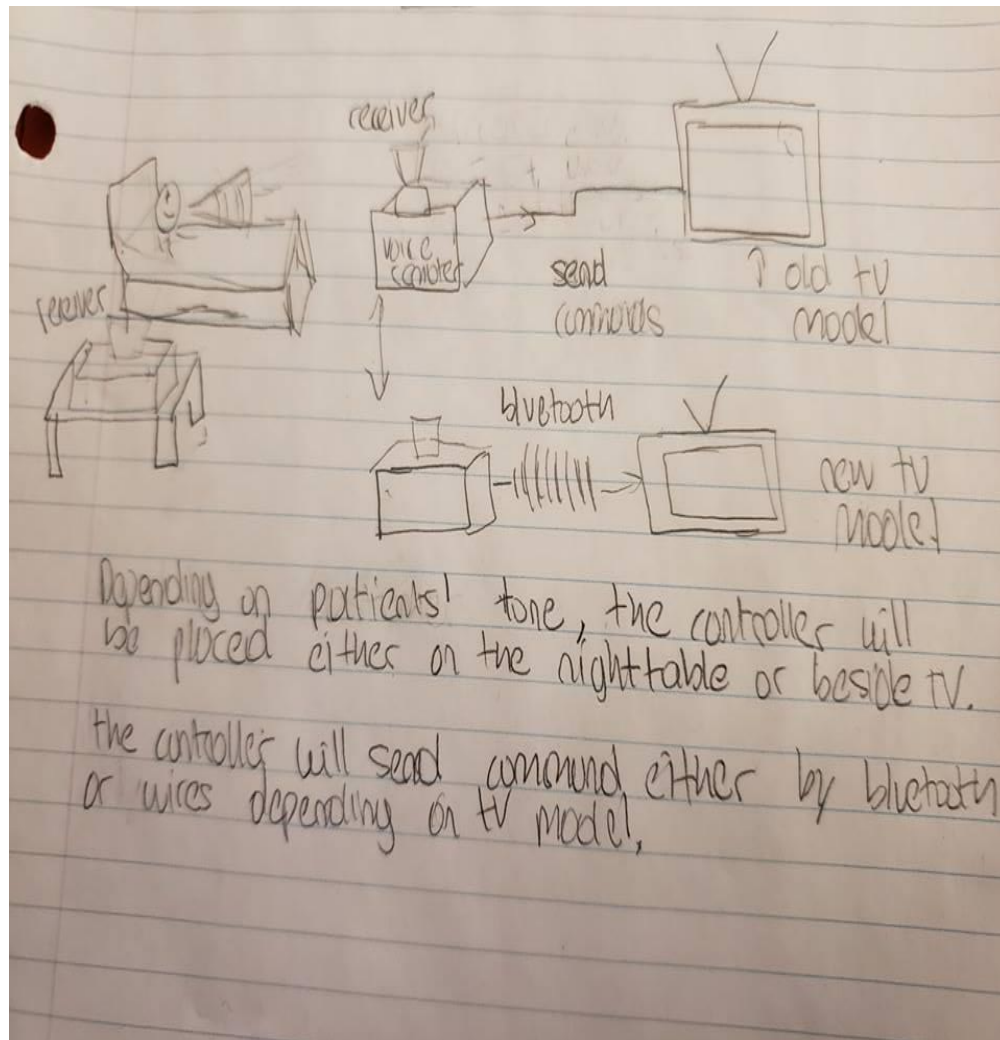 receiver
receiver
voice
send
commands
↑ old tv
model
bluetooth
new tv
model
Depending on patients' tone, the controller will
be placed either on the nighttable or beside TV.
the controller will send command either by bluetooth
or wires depending on tv model.